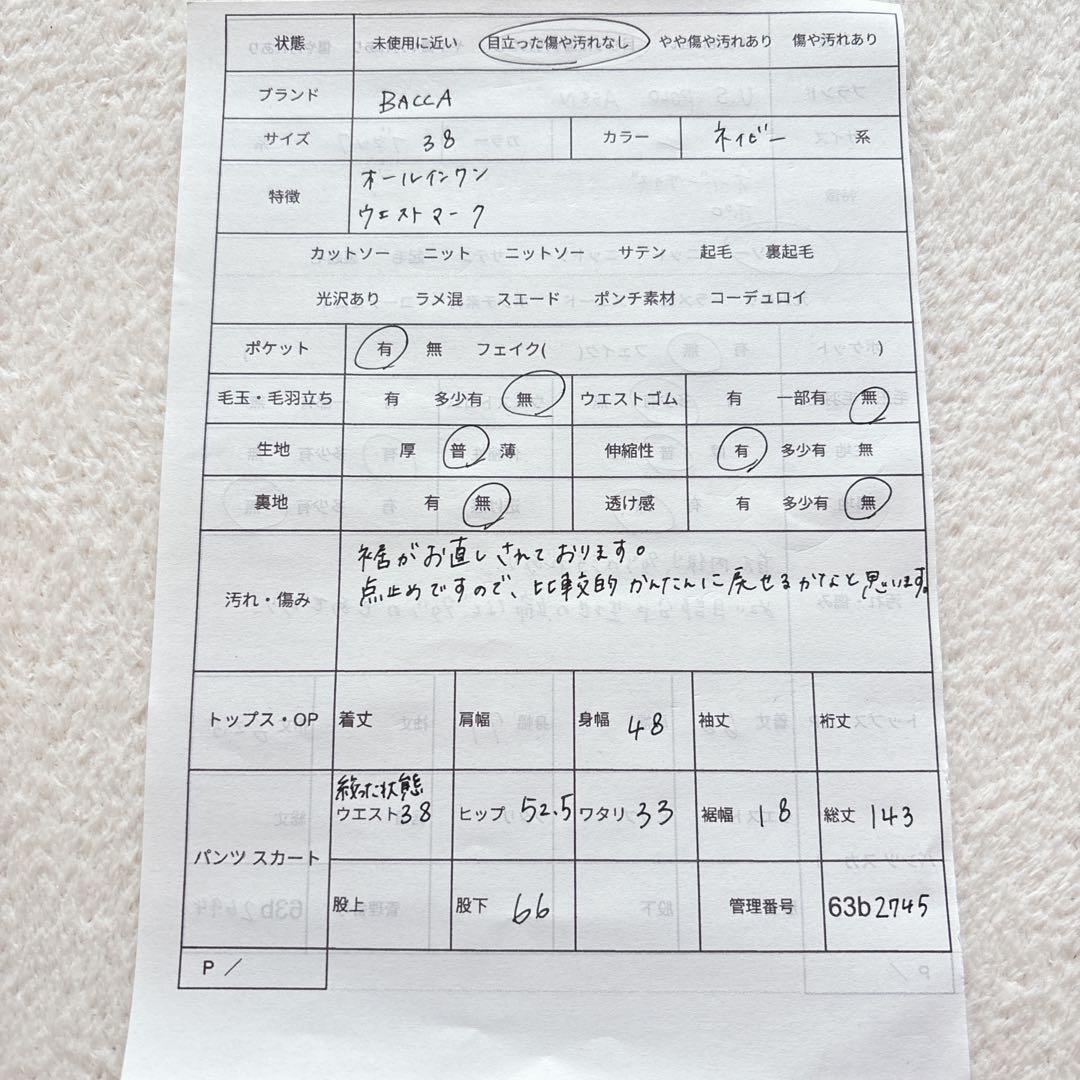 状態 未使用に近い 目立った傷や汚れなし やや傷や汚れあり 傷や汚れあり
ブランド BACCA
サイズ 38 カラー ネイビー 系
特徴 オールインワン
ウエストマーク
カットソー ニット ニットソー サテン 起毛 裏起毛
光沢あり ラメ混 スエード ポンチ素材 コーデュロイ
ポケット 有 無 フェイク( )
毛玉・毛羽立ち 有 多少有 無 ウエストゴム 有 一部有 無
生地 厚 普 薄 伸縮性 有 多少有 無
裏地 有 無 透け感 有 多少有 無
汚れ・傷み 裾がお直しされております。
点止めですので、比較的かんたんに戻せるかなと思います。
トップス・OP 着丈 肩幅 身幅 48 袖丈 裄丈
パンツ スカート 絞った状態
ウエスト 38 ヒップ 52.5 ワタリ 33 裾幅 18 総丈 143
股上 股下 66 管理番号 63b2745
P /